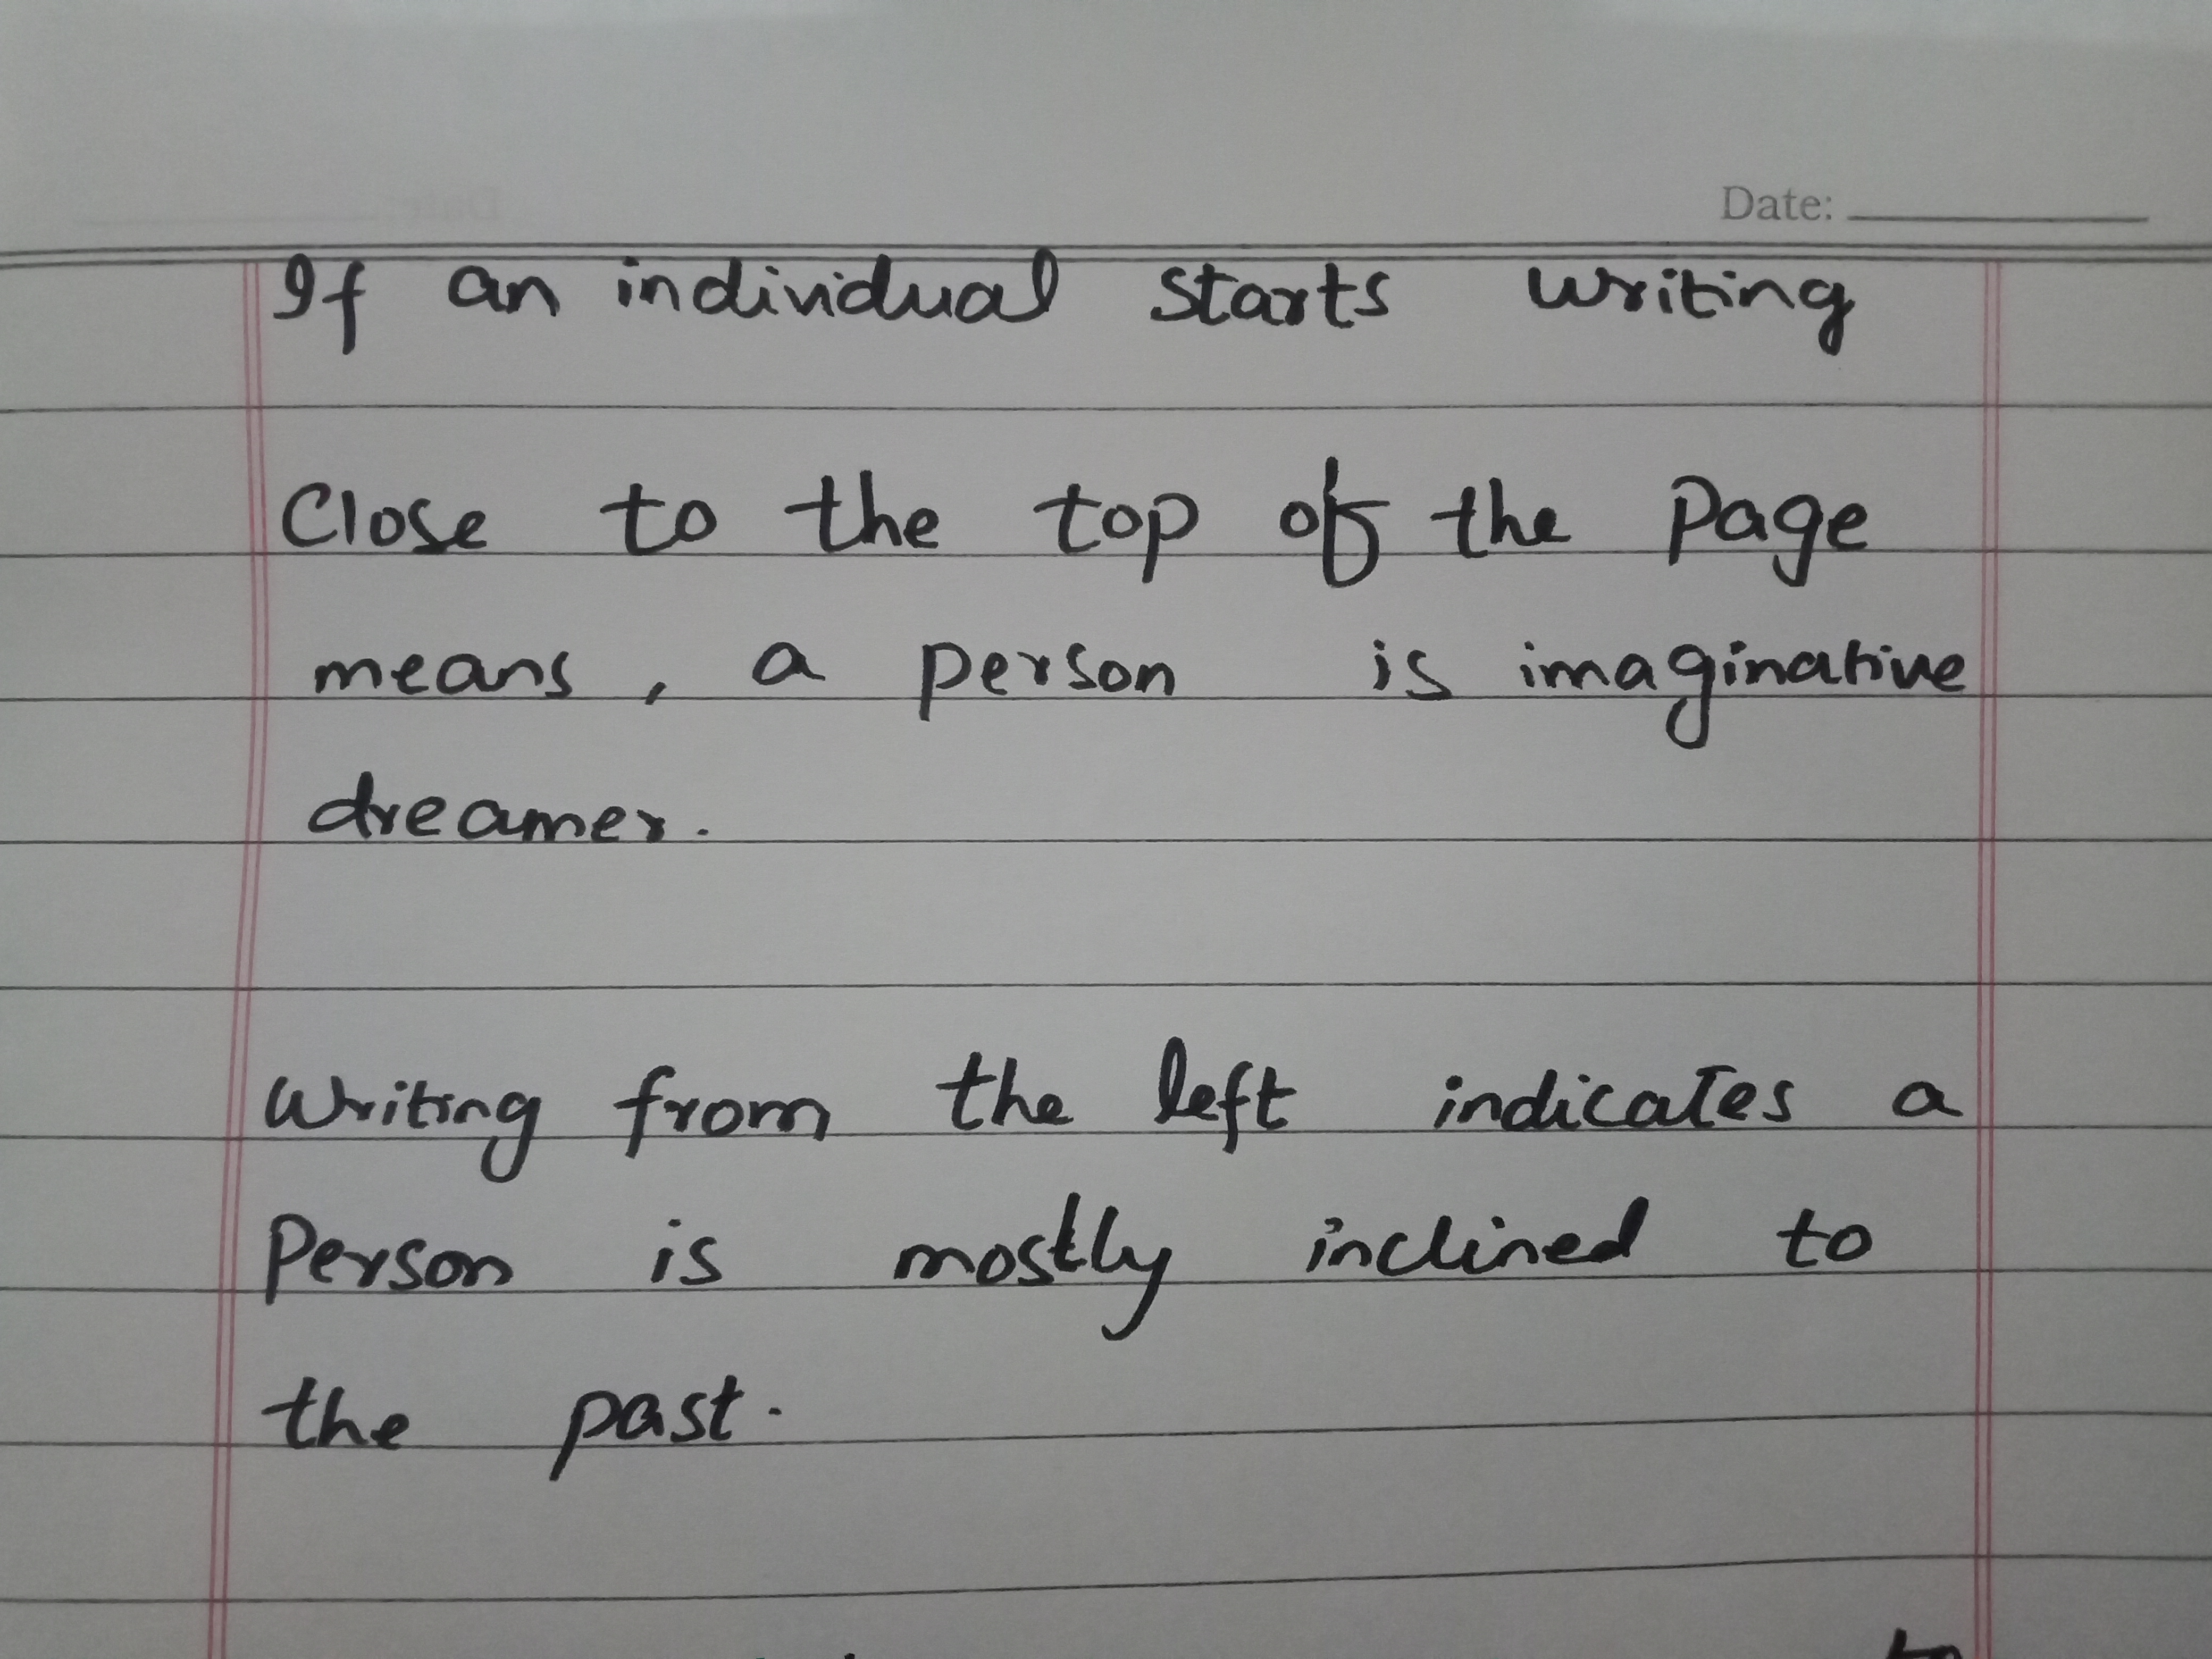 Date:
If an individual starts writing
Close to the top of the page
means, a person is imaginative
dreamer.
Writing from the left indicates a
Person is mostly inclined to
the past.
to